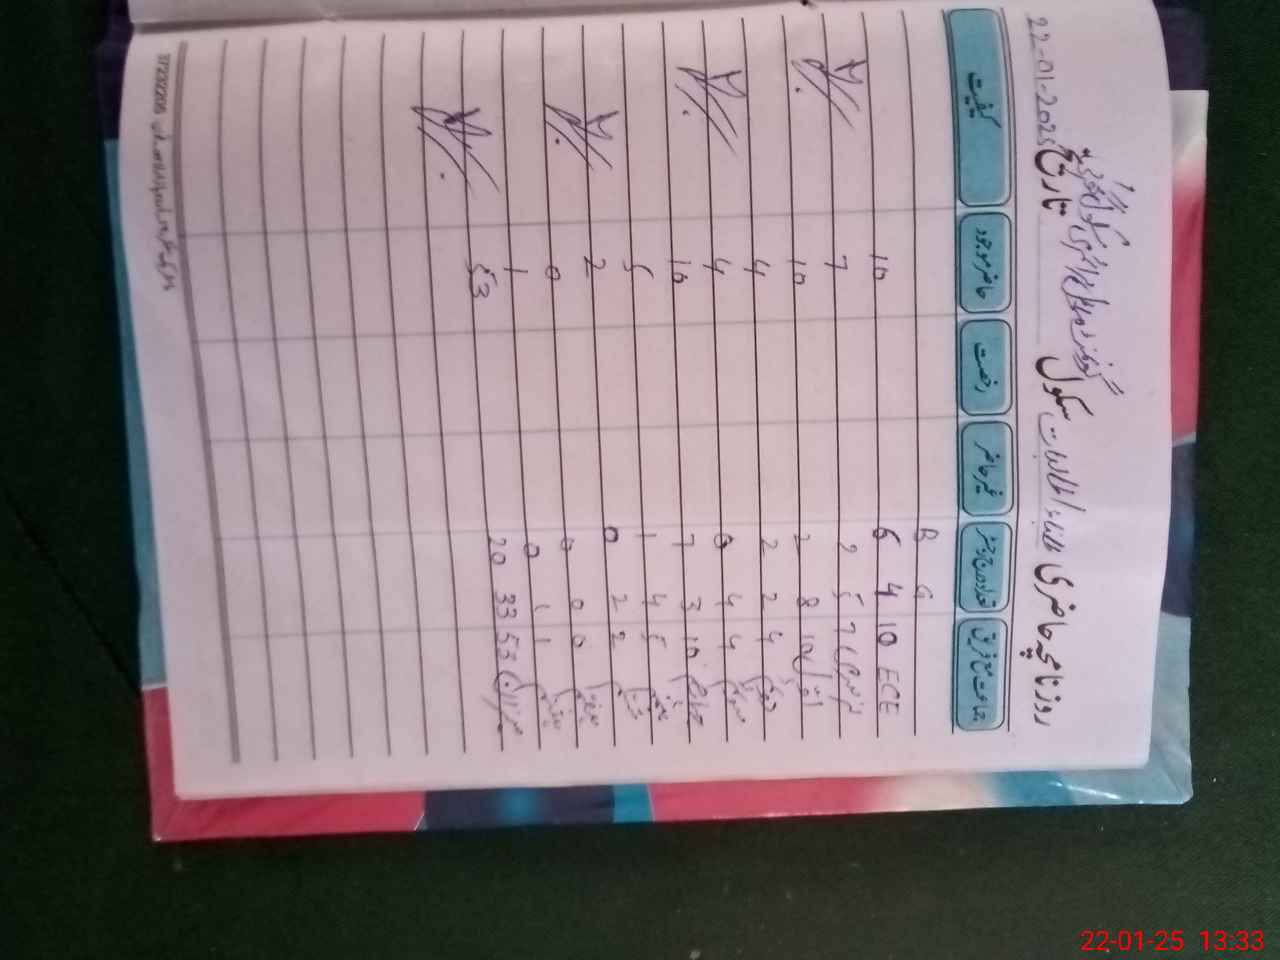 روزنامچہ حاضری طلباء/طالبات سکول گورنمنٹ ماڈل پرائمری سکول تاریخ 22-01-2025
جماعت مع فریق تعداد مندرج رجسٹر غیر حاضر رخصت حاضر موجود کیفیت
G B
ECE 10 4 6 10
نرسری 7 5 2 7
اول 10 8 2 10
دوم 4 2 2 4
سوم 4 4 0 4
چہارم 10 3 7 10
پنجم 5 4 1 5
ششم 2 2 0 2
ہفتم 0 0 0 0
ہشتم 1 1 0 1
میزان 53 33 20 53
22-01-25 13:33